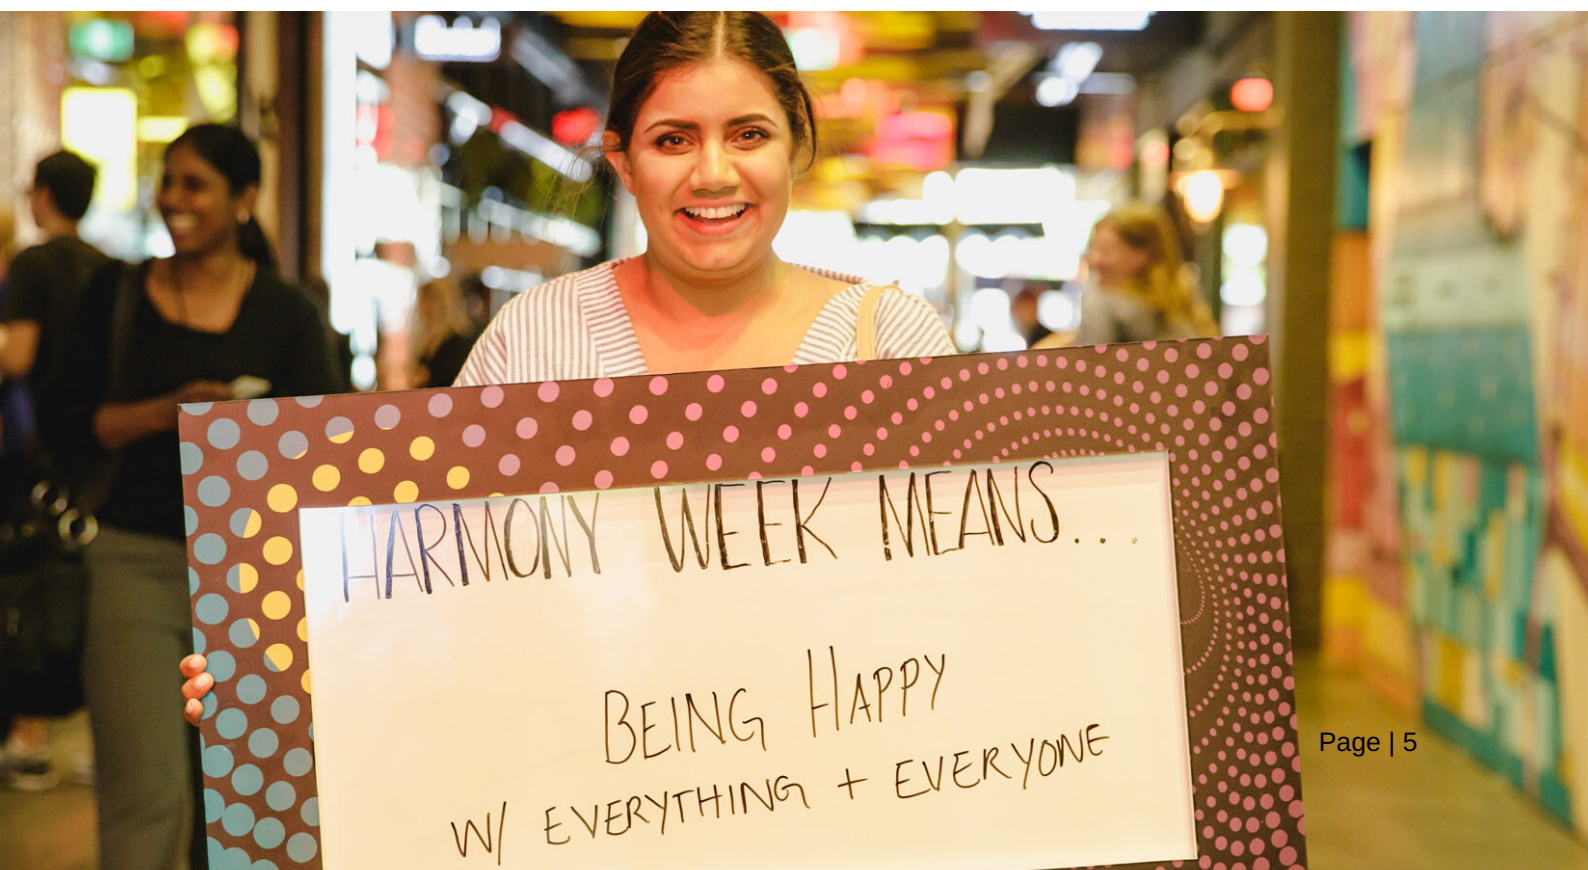 HARMONY WEEK MEANS...
BEING HAPPY
W/ EVERYTHING + EVERYONE
Page | 5